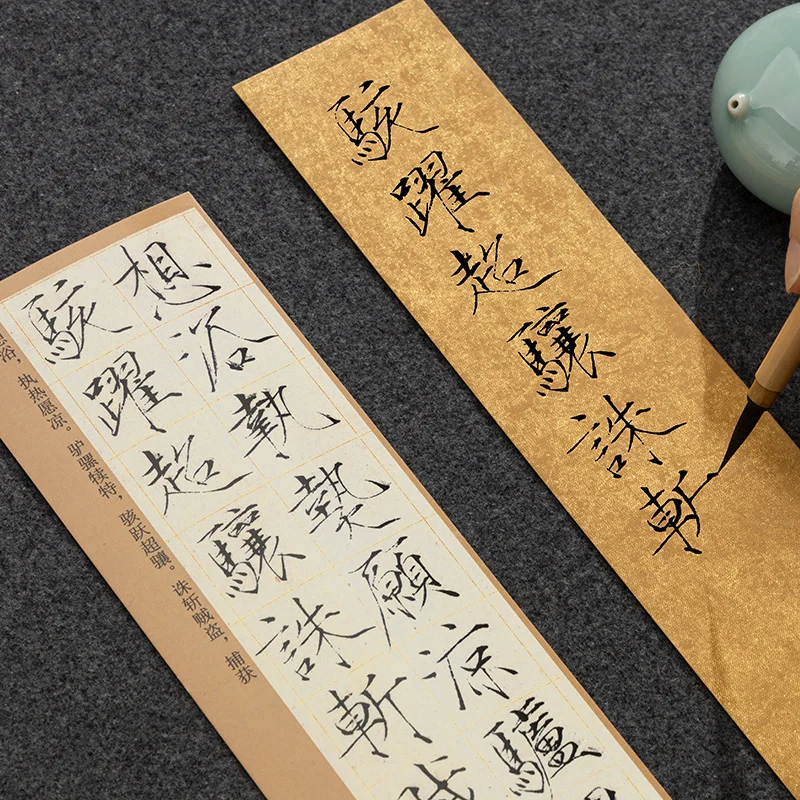 駭躍超驤誅斬
想浴執熱願涼驢
駭躍超驤誅斬賊
浴，执热愿凉。驴骡犊特，骇跃超骧。诛斩贼盗，捕获